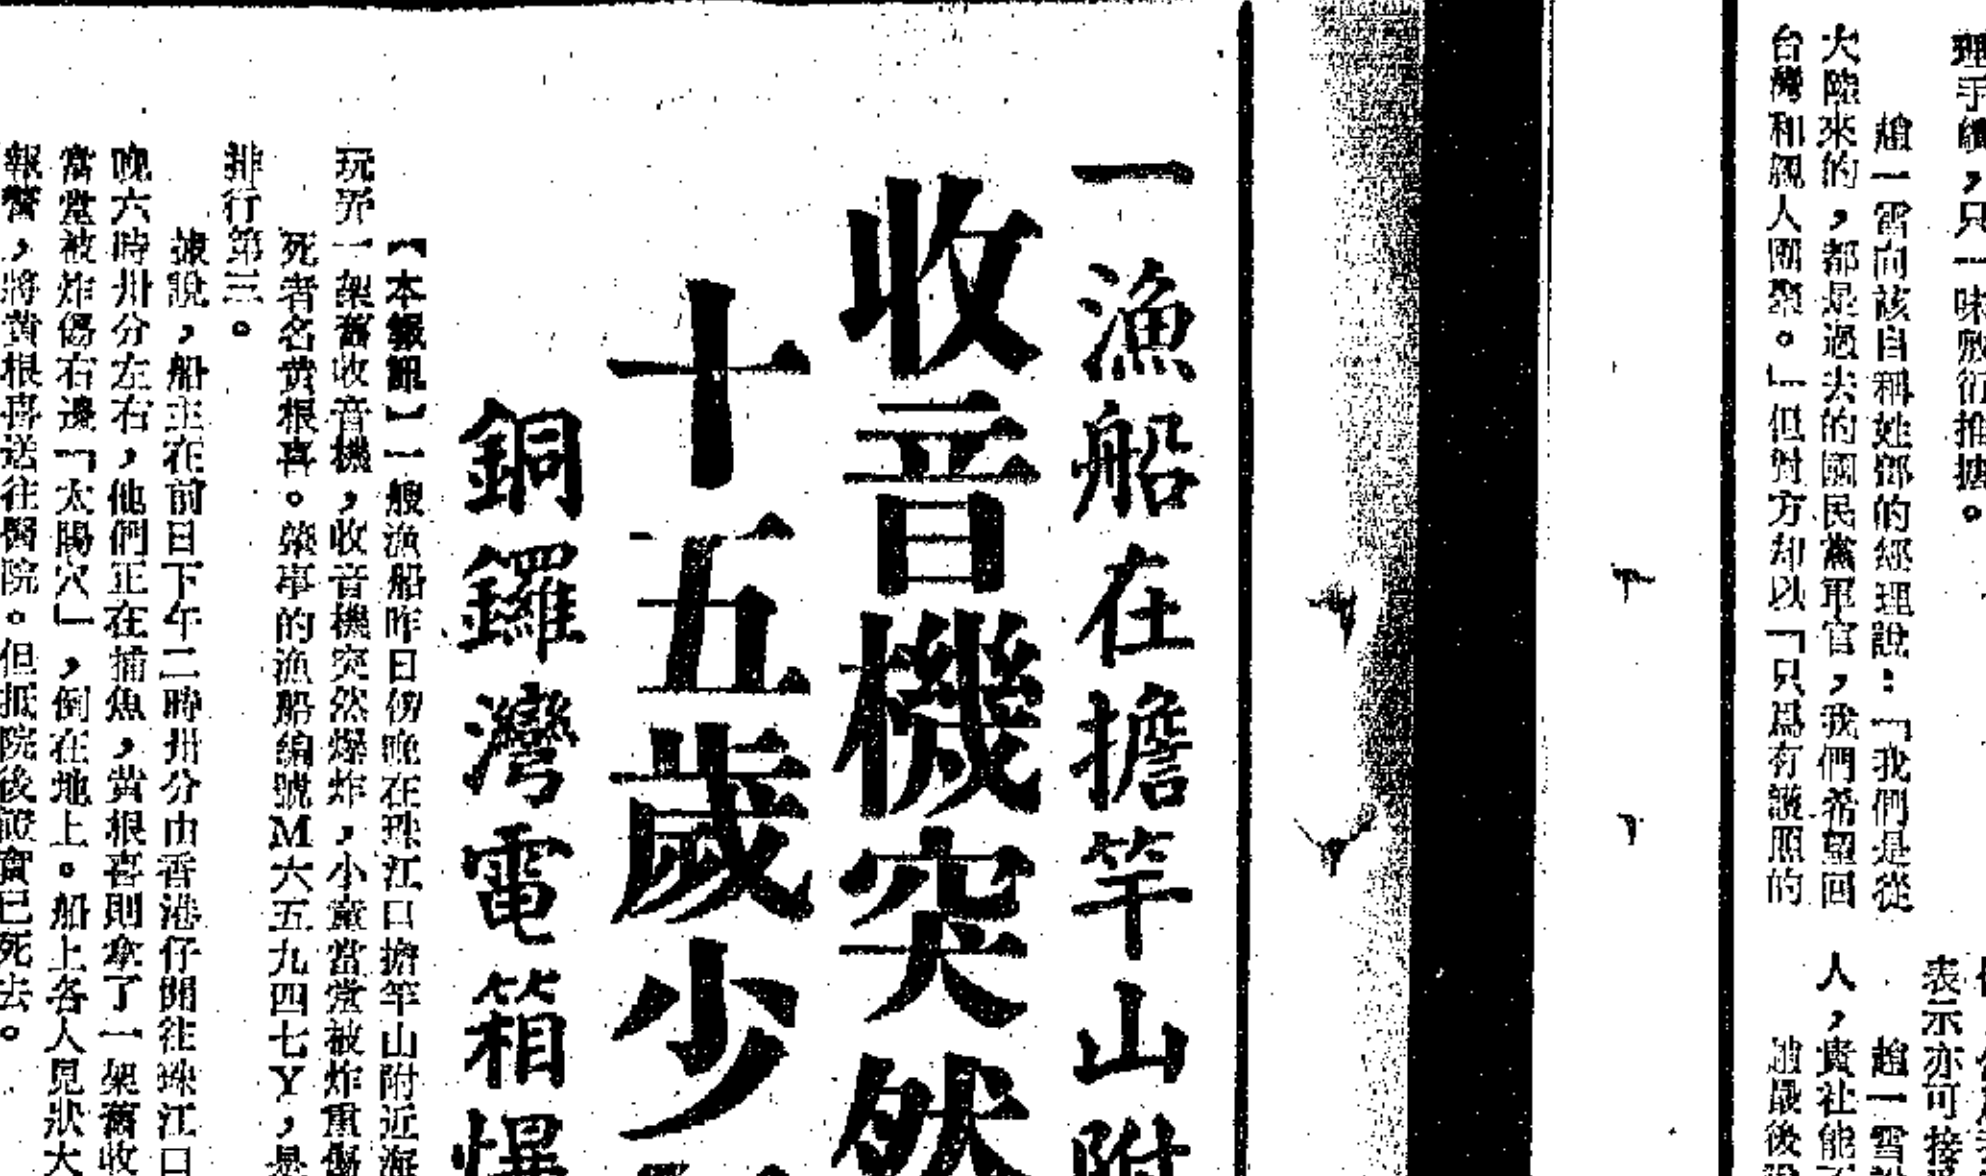 理手續，只一味敷衍推搪。
趙一雷向該自稱姓鄧的經理說：「我們是從
大陸來的，都是過去的國民黨軍官，我們希望回
台灣和親人團聚。」但對方却以「只爲有護照的
表示亦可接
趙一雪
人，貴社能
趙最後
一漁船在擔竿山附
收音機突然
十五歲少
銅鑼灣電箱爆
【本報訊】一艘漁船昨日傍晚在珠江口擔竿山附近海
玩弄一架舊收音機，收音機突然爆炸，小童當堂被炸重傷
死者名黃根喜。肇事的漁船編號M六五九四七Y，是
排行第三。
據說，船主在前日下午二時卅分由香港仔開往珠江口
晚六時卅分左右，他們正在捕魚，黃根喜則拿了一架舊收
當堂被炸傷右邊「太陽穴」，倒在地上。船上各人見狀大
報警，將黃根喜送往醫院。但抵院後證實已死去。